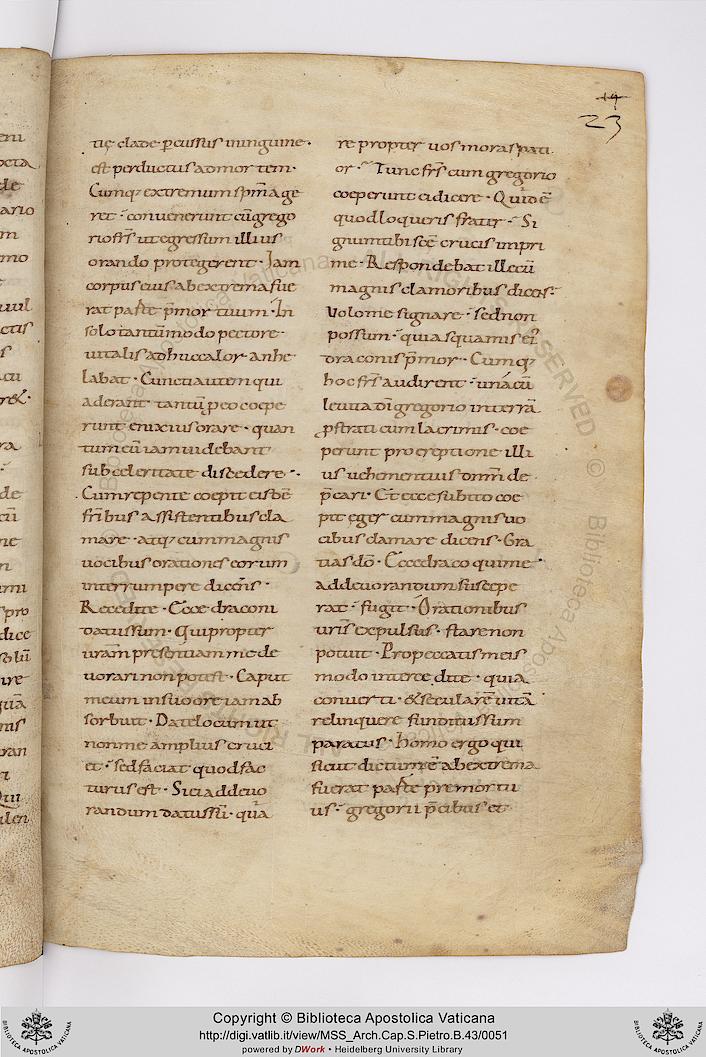 19
23
tię clade pcussus in inguine·
est perductus ad mortem·
Cumq; extremum spm̄ age
ret· convenerunt cū grego
rio frs̄ ut egressum illius
orando protegerent· Jam
corpus eius ab extrema sue
rat parte p̄mortuum· In
solo tantūmodo pectore
vitalis adhuc calor anhe
labat· Cuncti autem qui
aderant tantū p eo coepe
runt enixius orare· quan
tum eū iam videbant
sub celeritate discedere·
Cum repente coepit eisdē
fr̄ibus assistentibus cla
mare· atq; cum magnis
vocibus orationes eorum
interrumpere dicens·
Recedite· Ecce draconi
datus sum· Qui propter
vr̄am presentiam me de
vorari non potest· Caput
meum in suo ore iam ab
sorbuit· Date locum ut
non me amplius cruci
et· sed faciat quod fac
turus est· Si ei ad devo
randum datus sū· quā
re propter vos moras pati
or· Tunc frs̄ cum gregorio
coeperunt ei dicere· Quid ē
quod loqueris frater· Si
gnum tibi scē crucis impri
me· Respondebat ille cū
magnis clamoribus dicens·
Volo me signare· sed non
possum· quia squamis ei;
draconis p̄mor· Cumq;
hoc frs̄ audirent· unā cū
levita dī gregorio in terrā
ꝓstrati cum lacrimis· coe
perunt pro ereptione illi
us vehementius dnm̄ de
p̄cari· Et ecce subito coe
pit ęger cum magnis vo
cibus clamare dicens· Gra
tias dō· Ecce draco qui me
ad devorandum suscepe
rat· fugit· Orationibus
vr̄is expulsus· stare non
potuit· Pro peccatis meis
modo intercedite· quia
converti· & secularē vitā
relinquere funditus sum
paratus· homo ergo qui
sicut dictum ē ab extrema
fuerat parte premortu
us· gregorii p̄cibus et
Copyright © Biblioteca Apostolica Vaticana
http://digi.vatlib.it/view/MSS_Arch.Cap.S.Pietro.B.43/0051
powered by DWork • Heidelberg University Library